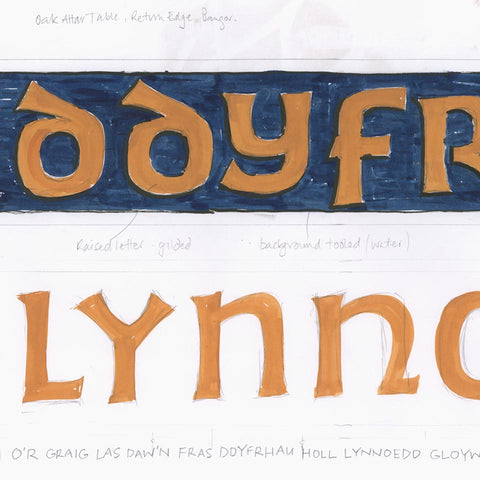 Oak Altar Table, Return Edge, Bangor.
DDYFR
Raised letter - gilded background tooled (water)
LYNNO
O'R GRAIG LAS DAW'N FRAS DDYFRHAU HOLL LYNNOEDD GLOYW